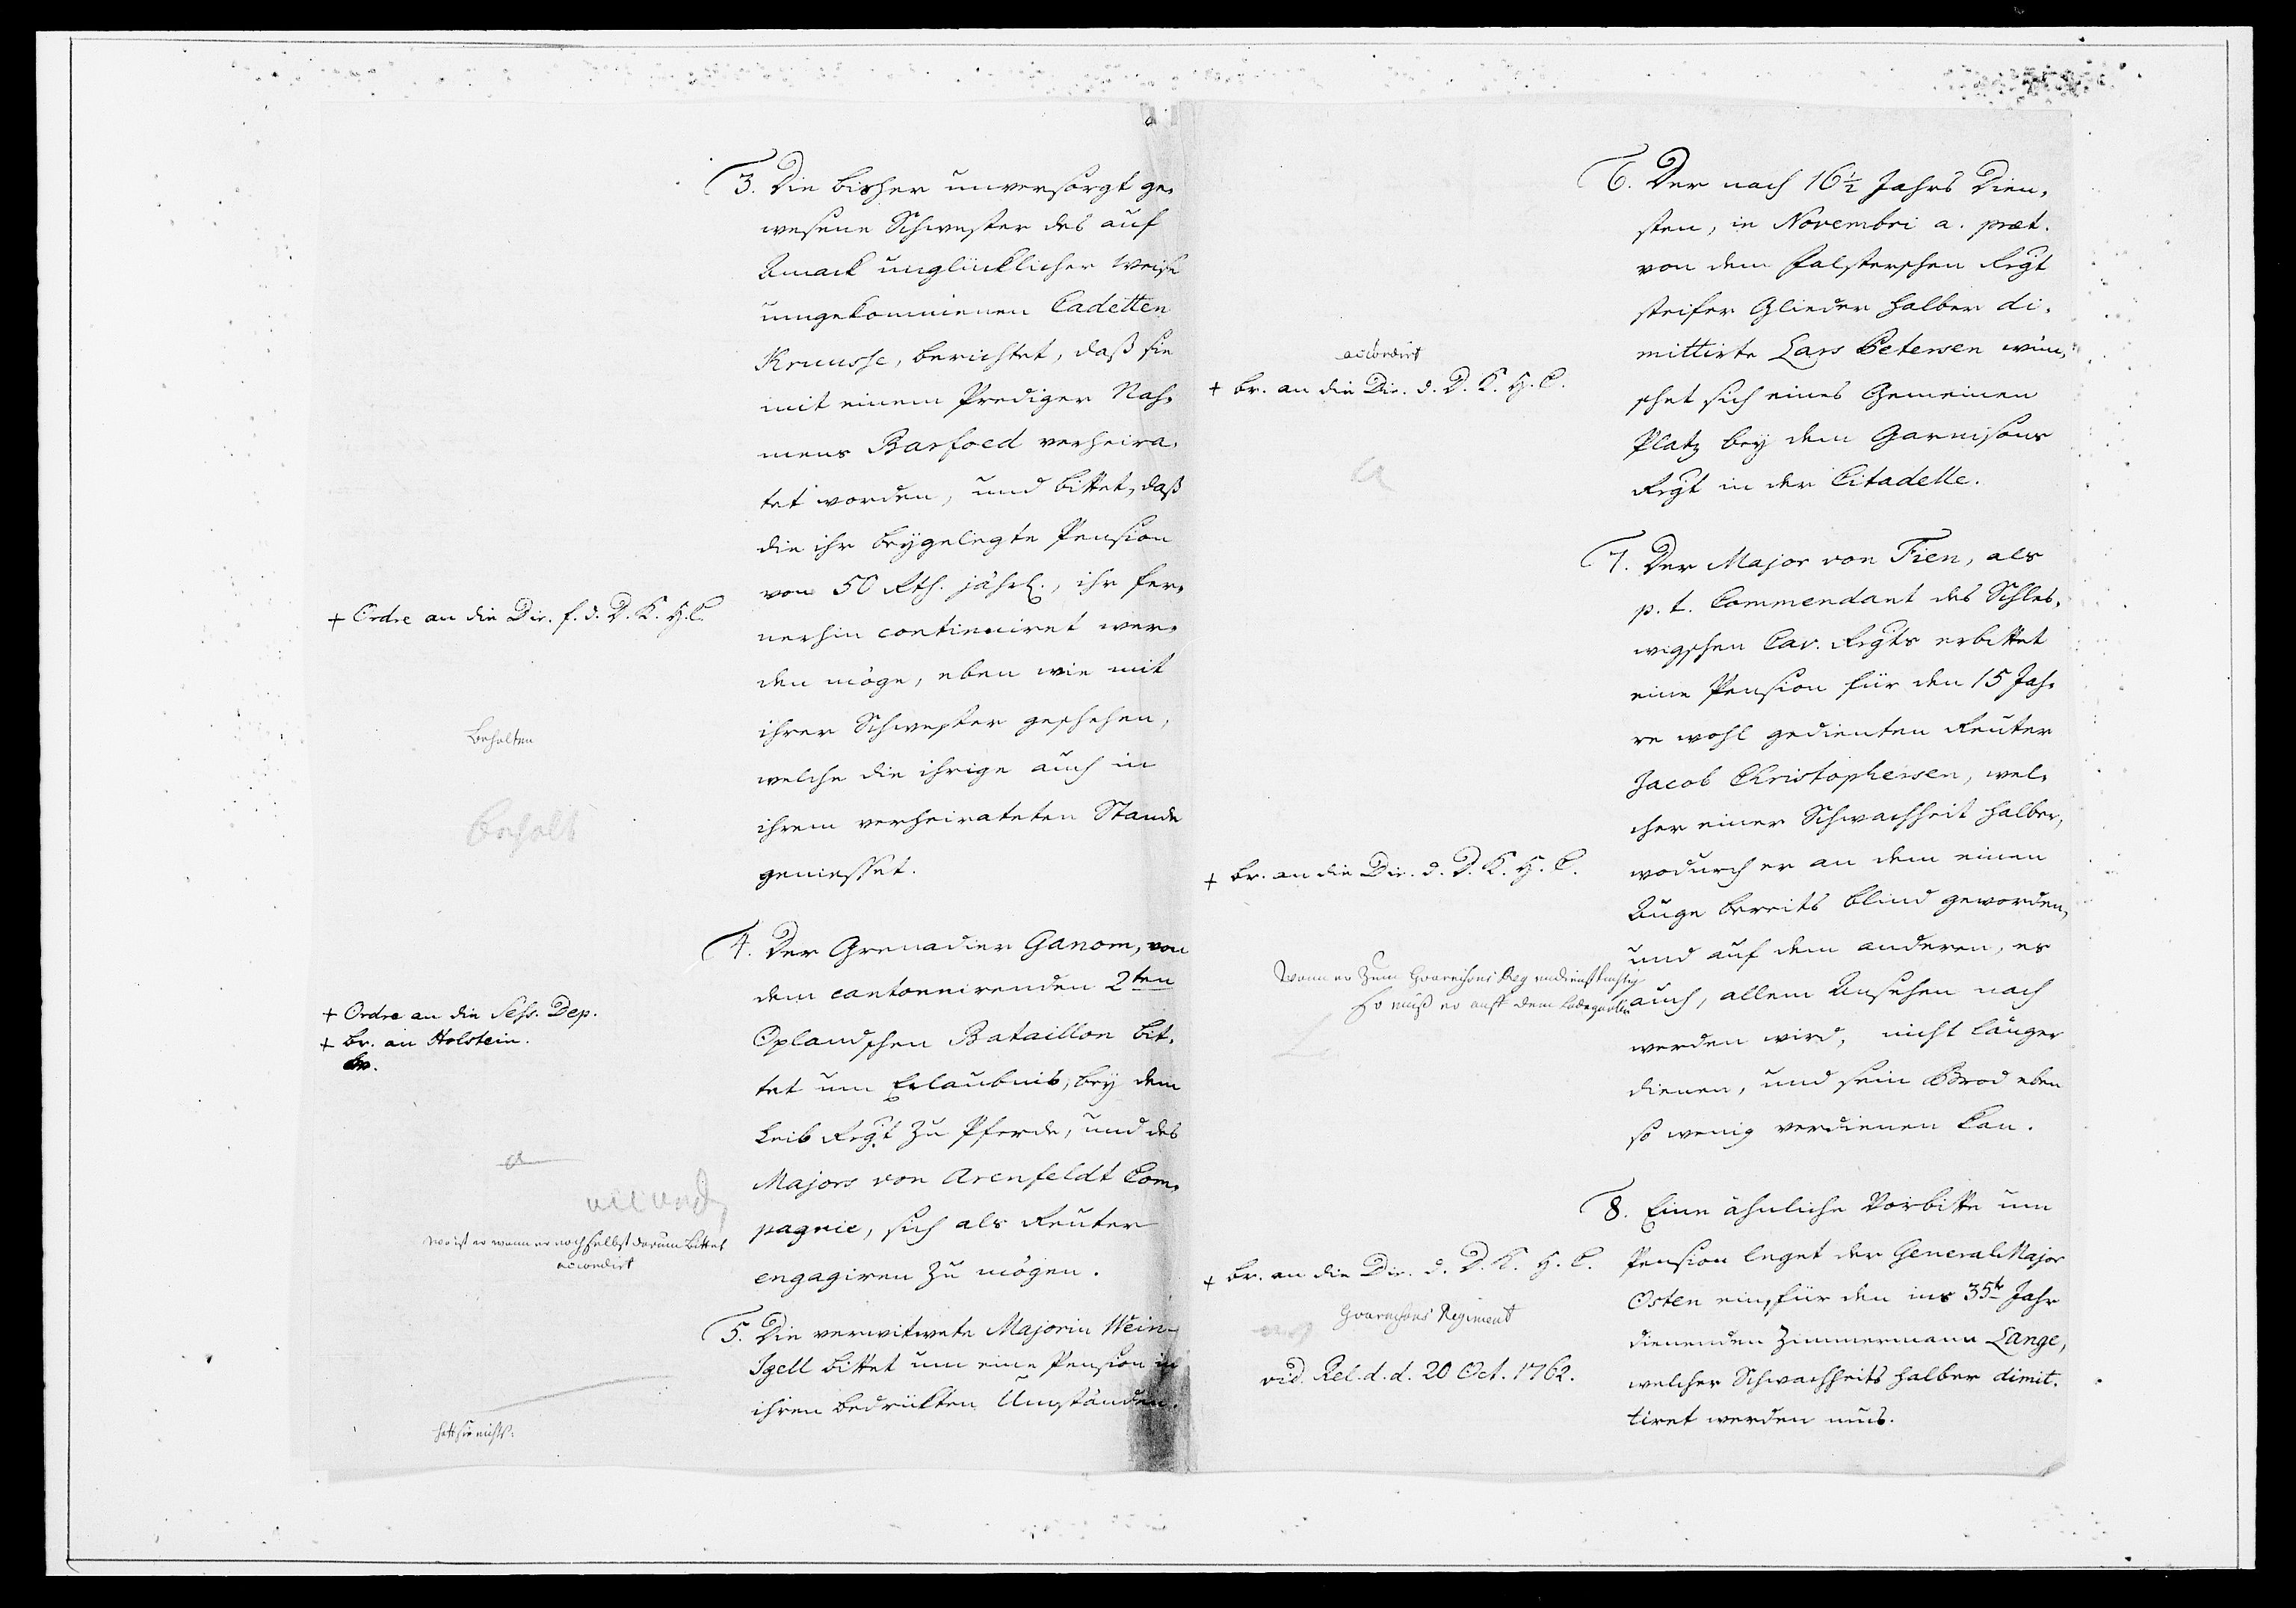 3. Die bisher unversorgt ge-
wesene Schwester des auf
Amack unglücklicher weise
umgekommenen Cadetten
Kruusse, berichtet, daß sie
mit einem Prediger Nah-
mens Barfoed verheira-
tet worden, und bittet, daß
die ihr beygelegte Pension
von 50 Rth. jährl., ihr fer-
nerhin continuiret wer-
den möge, eben wie mit
ihrer Schwester geschehen,
welche die ihrige auch in
ihrem verheirateten Stande
geniesset.
+ Ordre an die Dir. f. d. D. K. H. C.
behalten
behalt
4. Der Grenadier Ganom, von
dem cantonnirenden 2ten
Oplandschen Bataillon bit-
tet um Erlaubnis, bey dem
Leib Regt zu Pferde, und des
Majors von Arenfeldt Com-
pagnie, sich als Reuter
engagiren zu mögen.
+ Ordre an die Sess. Dep.
+ br. an Holstein.
br.
a
accord
wo ist er wann er noch selbst darum bittet
accordirt
5. Die verwitwete Majorin Wein-
Igell bittet um eine Pension in
ihren bedrükten Umständen.
hatt sie nichts.
6. Der nach 16½ Jahrs Dien-
sten, in Novembri a. præt.
von dem Falsterschen Regt
steifer Glieder halber di-
mittirte Lars Petersen wün-
schet sich eines Gemeinen
Platz bey dem Garnisons
Regt in der Citadelle.
accordirt
+ br. an die Dir. d. D. K. H. C.
a
7. Der Major von Fien, als
p. t. Commendant des Schles-
wigschen Cav. Regts erbittet
eine Pension für den 15 Jah-
re wohl gedienten Reuter
Jacob Christophersen, wel-
cher einer Schwachheit halber,
wodurch er an dem einen
Auge bereits blind geworden,
und auf dem anderen, es
auch, allem Ansehen nach
werden wird, nicht länger
dienen, und sein Brod eben
so wenig verdienen kan.
+ br. an die Dir. d. D. K. H. C.
Wann er zum Guarnisons Reg undienstüchtig
so muß er auff dem
8. Eine ähnliche Vorbitte um
Pension leget der General Major
Osten ein, für den ins 35te Jahr
dienenden Zimmermann Lange,
welcher Schwachheits halber dimit-
tiret werden mus.
+ br. an die Dir. d. D. K. H. C.
Guarnisons Regiment
vid. Rel. d. d. 20 Oct. 1762.